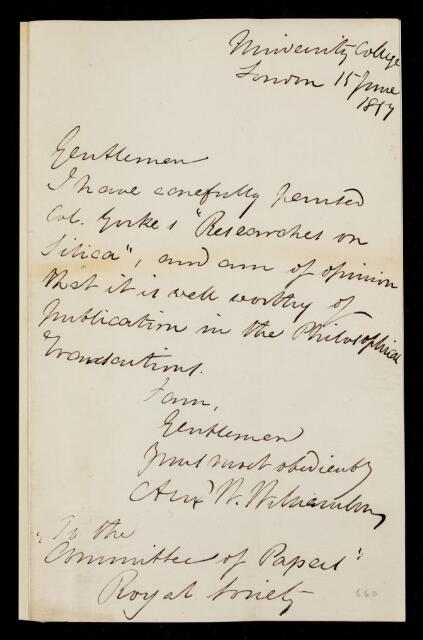 University College
London 15 June
1857
Gentlemen
I have carefully perused
Col. Yorke's "Researches on
Silica", and am of opinion
that it is well worthy of
publication in the Philosophical
Transactions.
I am,
Gentlemen
Your most obediently
Alexr W. Williamson
"To the
Committee of Papers"
Royal Society
660